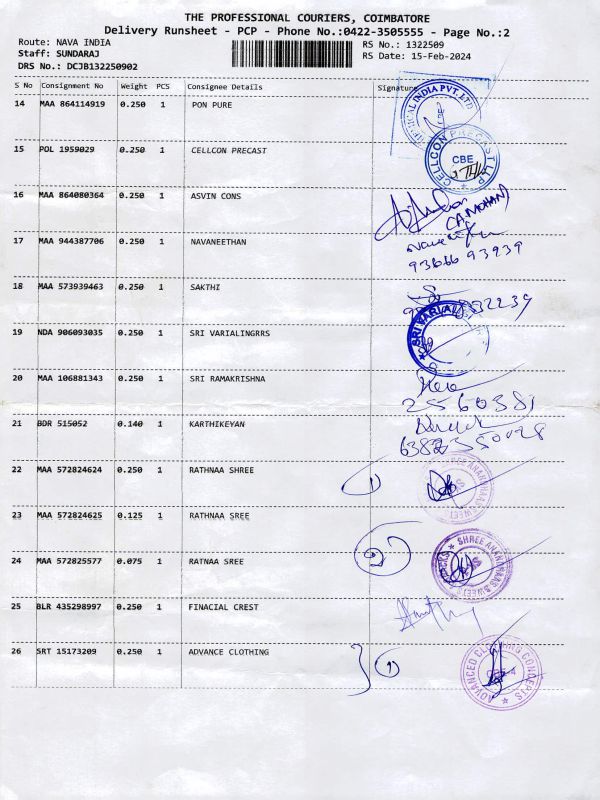 THE PROFESSIONAL COURIERS, COIMBATORE
Delivery Runsheet - PCP - Phone No.:0422-3505555 - Page No.:2
Route: NAVA INDIA
Staff: SUNDARAJ
DRS No.: DCJB132250902
RS No.: 1322509
RS Date: 15-Feb-2024
S No Consignment No Weight PCS Consignee Details Signature
14 MAA 864114919 0.250 1 PON PURE
15 POL 1959029 0.250 1 CELLCON PRECAST
CELLCON PRECAST LLP
CBE
16 MAA 864080364 0.250 1 ASVIN CONS
(A.MOHAN)
17 MAA 944387706 0.250 1 NAVANEETHAN
93666 93939
18 MAA 573939463 0.250 1 SAKTHI
19 NDA 906093035 0.250 1 SRI VARIALINGRRS
20 MAA 106881343 0.250 1 SRI RAMAKRISHNA
2560381
21 BDR 515052 0.140 1 KARTHIKEYAN
22 MAA 572824624 0.250 1 RATHNAA SHREE
1)
23 MAA 572824625 0.125 1 RATHNAA SREE
24 MAA 572825577 0.075 1 RATNAA SREE
25 BLR 435298997 0.250 1 FINACIAL CREST
26 SRT 15173209 0.250 1 ADVANCE CLOTHING
ADVANCED CLOTHING CONCEPTS